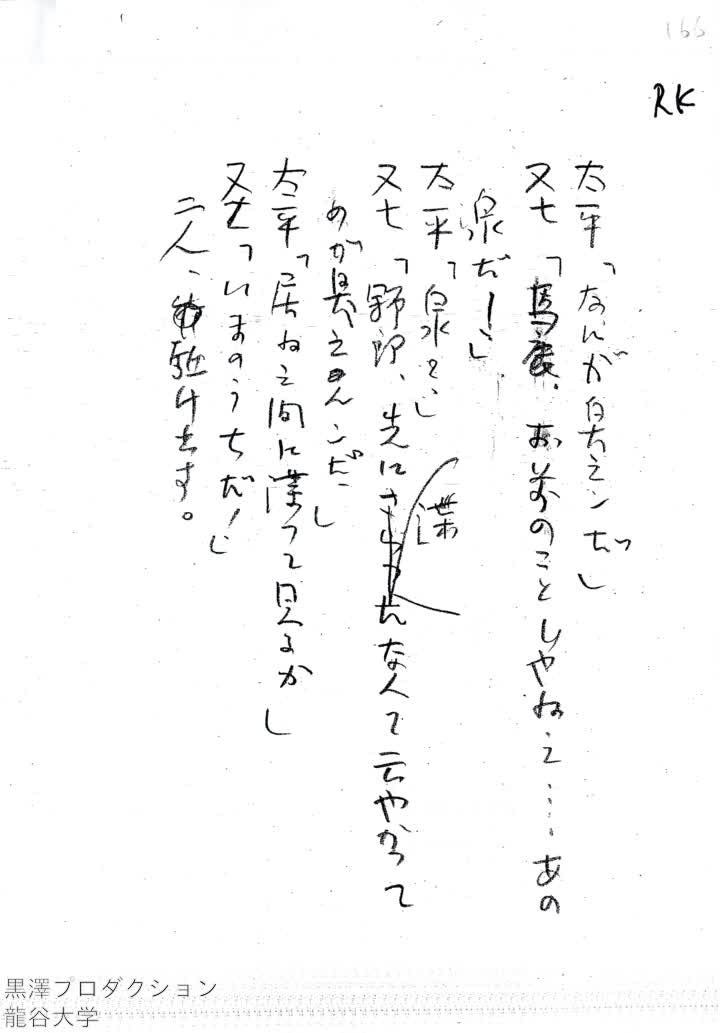 166
RK
太平「なにが臭えンだ」
又七「馬鹿、お前のことじやねえ……あの
泉だ！」
太平「泉？」
又七「野郎、先にさわつたなんて云やがつて
潜
めが臭えのんこだ」
太平「居ねえ間に潜つて見るか」
又七「いまのうちだ！」
二人、駈け出す。
黒澤プロダクション
龍谷大学